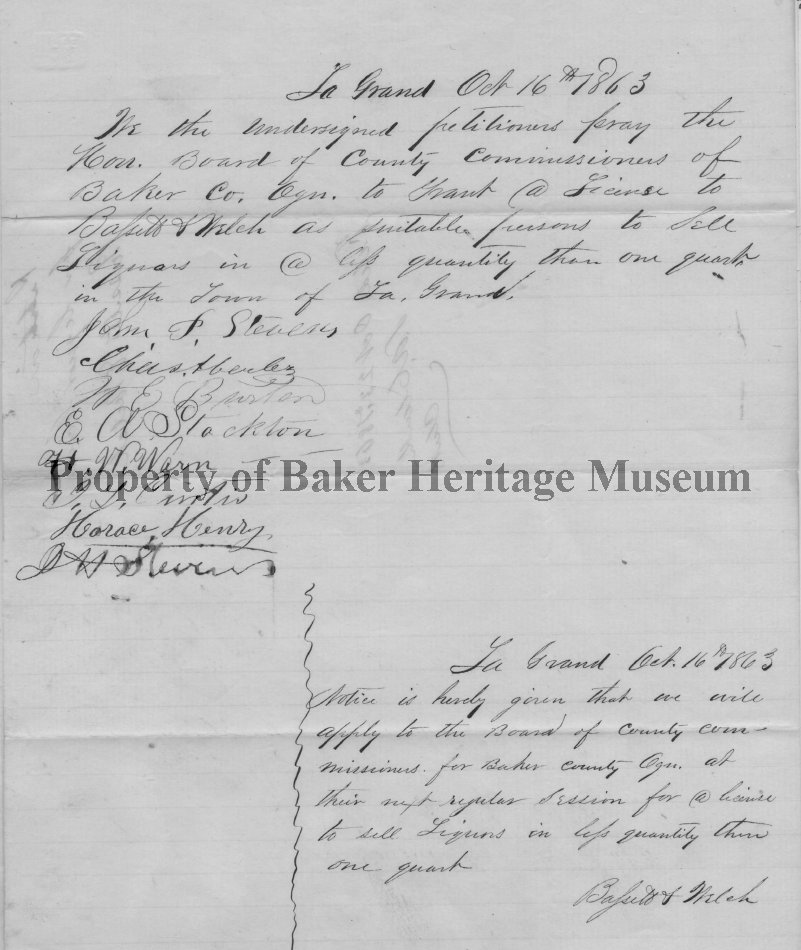 La Grand Oct 16th 1863
We the undersigned petitioners pray the
Hon. Board of County Commissioners of
Baker Co. Ogn. to Grant @ License to
Bassett & Welch as suitable persons to Sell
Liquors in @ less quantity than one quart
in the Town of La. Grand.
John S. Stevens
Chas.
W E Burton
E. A Stockton
W. Warn
Property of Baker Heritage Museum
Horace, Henry,
J H Stevens
La Grand Oct. 16th 1863
Notice is hereby given that we will
apply to the Board of County com-
missioners for Baker county Ogn. at
their next regular Session for @ license
to sell Liquors in less quantity then
one quart
Bassett & Welch